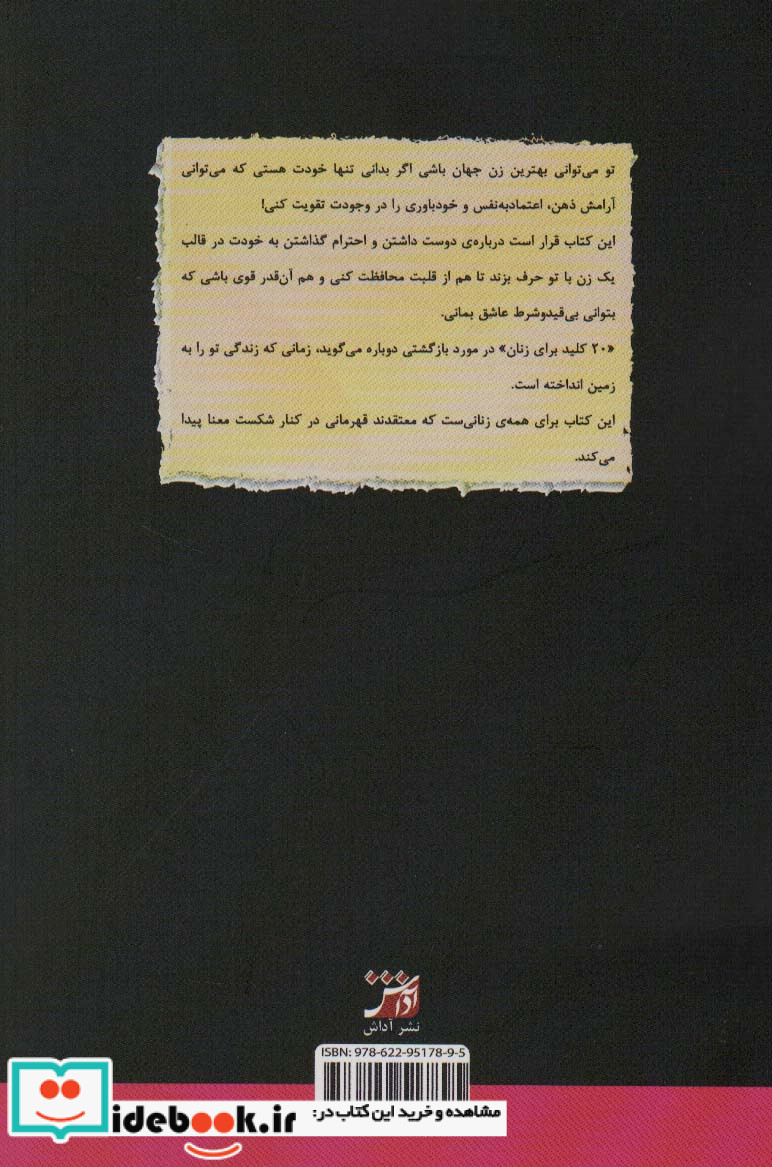 تو می‌توانی بهترین زن جهان باشی اگر بدانی تنها خودت هستی که می‌توانی
آرامش ذهن، اعتمادبه‌نفس و خودباوری را در وجودت تقویت کنی!
این کتاب قرار است درباره‌ی دوست داشتن و احترام گذاشتن به خودت در قالب
یک زن با تو حرف بزند تا هم از قلبت محافظت کنی و هم آن‌قدر قوی باشی که
بتوانی بی‌قیدوشرط عاشق بمانی.
«۲۰ کلید برای زنان» در مورد بازگشتی دوباره می‌گوید، زمانی که زندگی تو را به
زمین انداخته است.
این کتاب برای همه‌ی زنانی‌ست که معتقدند قهرمانی در کنار شکست معنا پیدا
می‌کند.
آداش
نشر آداش
ISBN: 978-622-95178-9-5
مشاهده و خرید این کتاب در:
idebook.ir